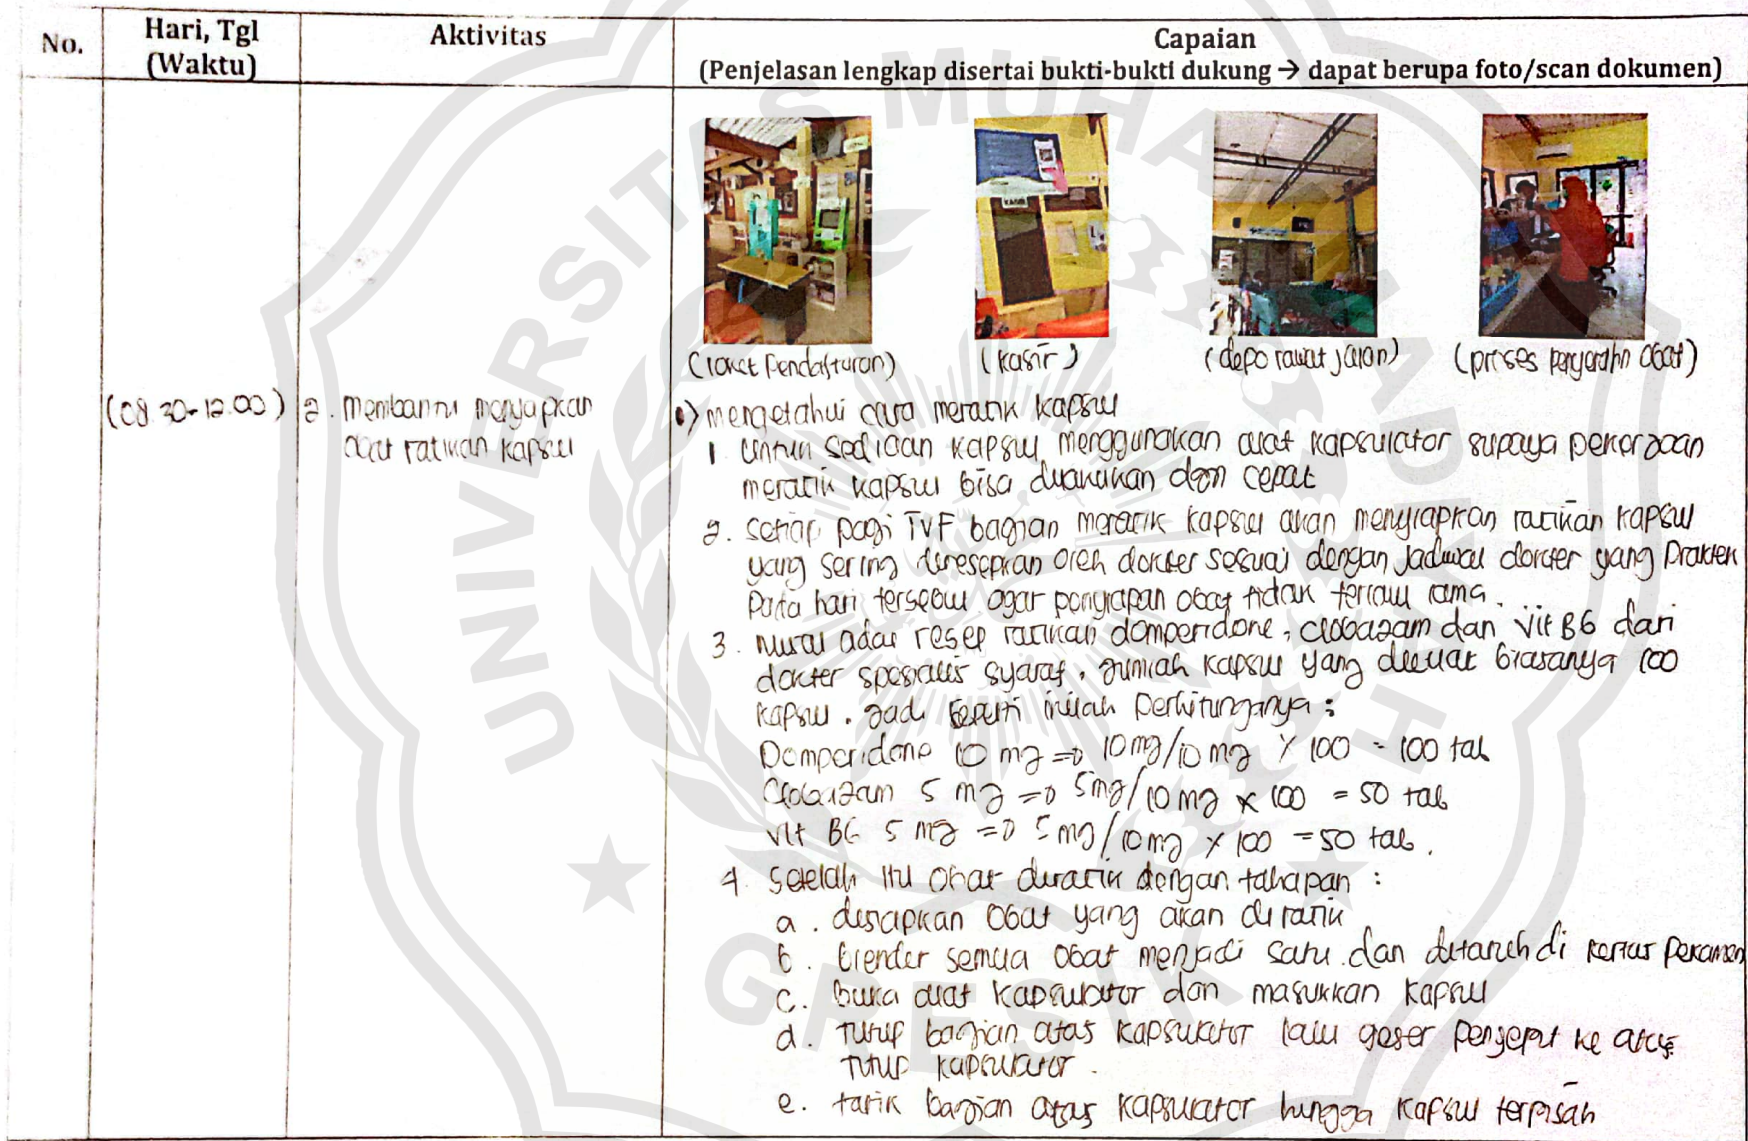 No.
Hari, Tgl
(Waktu)
Aktivitas
Capaian
(Penjelasan lengkap disertai bukti-bukti dukung → dapat berupa foto/scan dokumen)
UNIVERSITAS MUHAMMADIYAH
GRESIK
KASIR
(loket Pendaftaran)
(kasir)
(depo rawat jalan)
(proses penyerahan obat)
(08.30-12.00)
2. membantu menyiapkan
obat racikan kapsul
•) mengetahui cara meracik kapsul
1. Untuk sediaan kapsul menggunakan alat kapsulator supaya pekerjaan
meracik kapsul bisa dilakukan dgn cepat
2. setiap pagi TVF bagian meracik kapsul akan menyiapkan racikan kapsul
yang sering diresepkan oleh dokter sesuai dengan jadwal dokter yang praktek
pada hari tersebut agar penyiapan obat tidak terlalu lama.
3. Mulai adar resep racikan domperidone, clobazam dan vit B6 dari
dokter spesialis syaraf, jumlah kapsul yang dibuat biasanya 100
kapsul. jadi seperti inilah perhitunganya :
Domperidone 10 mg => 10 mg/10 mg x 100 = 100 tab
Clobazam 5 mg => 5 mg/10 mg x 100 = 50 tab
vit B6 5 mg => 5 mg/10 mg x 100 = 50 tab.
4. setelah itu obat diracik dengan tahapan :
a. disiapkan obat yang akan diracik
b. blender semua obat menjadi satu dan ditaruh di kertas perkamen
c. buka alat kapsulator dan masukkan kapsul
d. Tutup bagian atas kapsulator lalu geser penjepit ke atas
tutup kapsulator.
e. tarik bagian atas kapsulator hingga kapsul terpisah